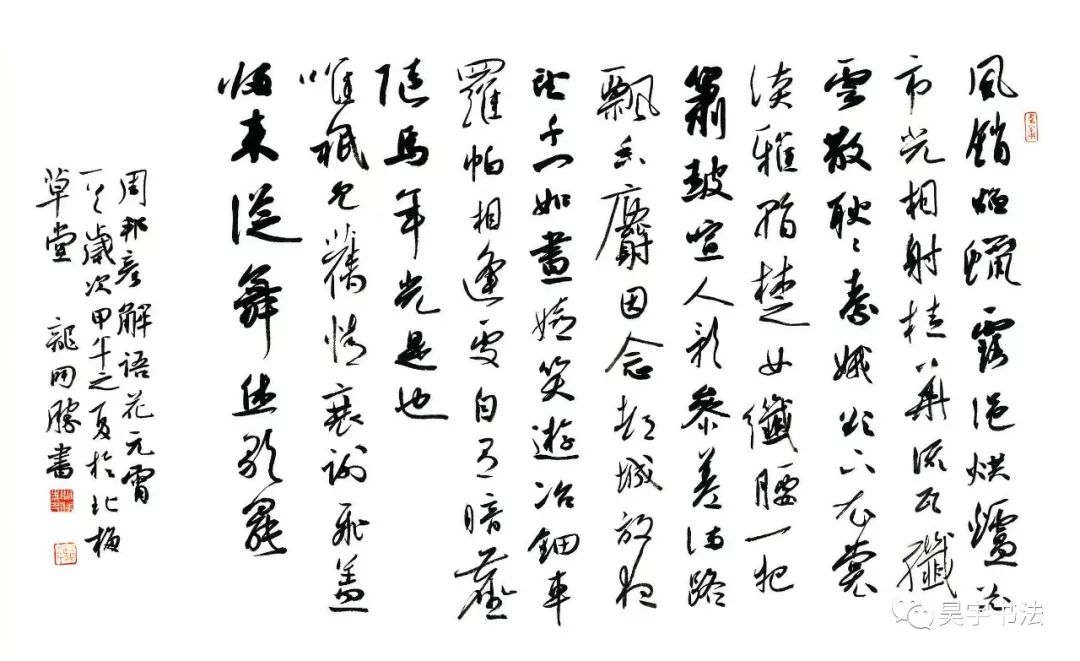 風銷焰蠟露浥烘爐花
市光相射桂華流瓦纖
雲散耿々素娥欲下衣裳
淡雅看楚女纖腰一把
簫鼓喧人影參差满路
飄香麝因念都城放夜
望千门如晝嬉笑遊冶鈿車
羅帕相逢處自有暗塵
随馬年光是也
唯祇見舊情衰謝飛蓋
归来從舞休歌罷
周邦彦解語花元宵
一首歲次甲午之夏於北梅
草堂 龍開勝書
昊宇书法